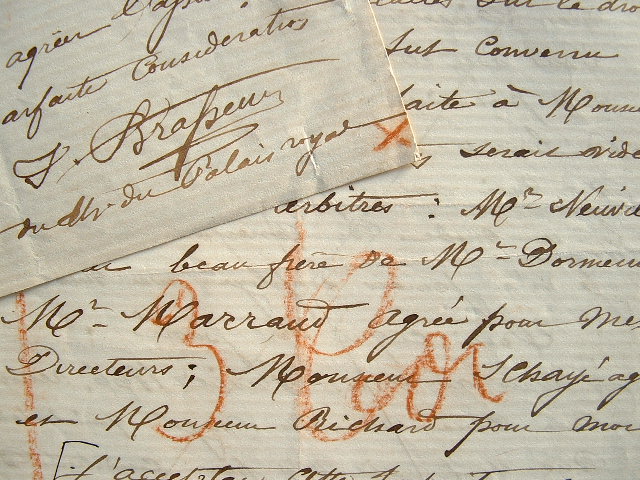 agréer
parfaite considération
J. Brasseur
du Palais royal
sur le dro
fut convenu
faite à Mons
serait vidé
arbitres : Mr Neuvi
beau frère de Mr Dormeu
Mr Marraud agréé pour Me
Directeurs ; Monsieur Schayé ag
et Monsieur Richard pour moi
3